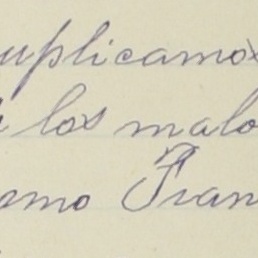 uplicamos
los malo
mo Fran